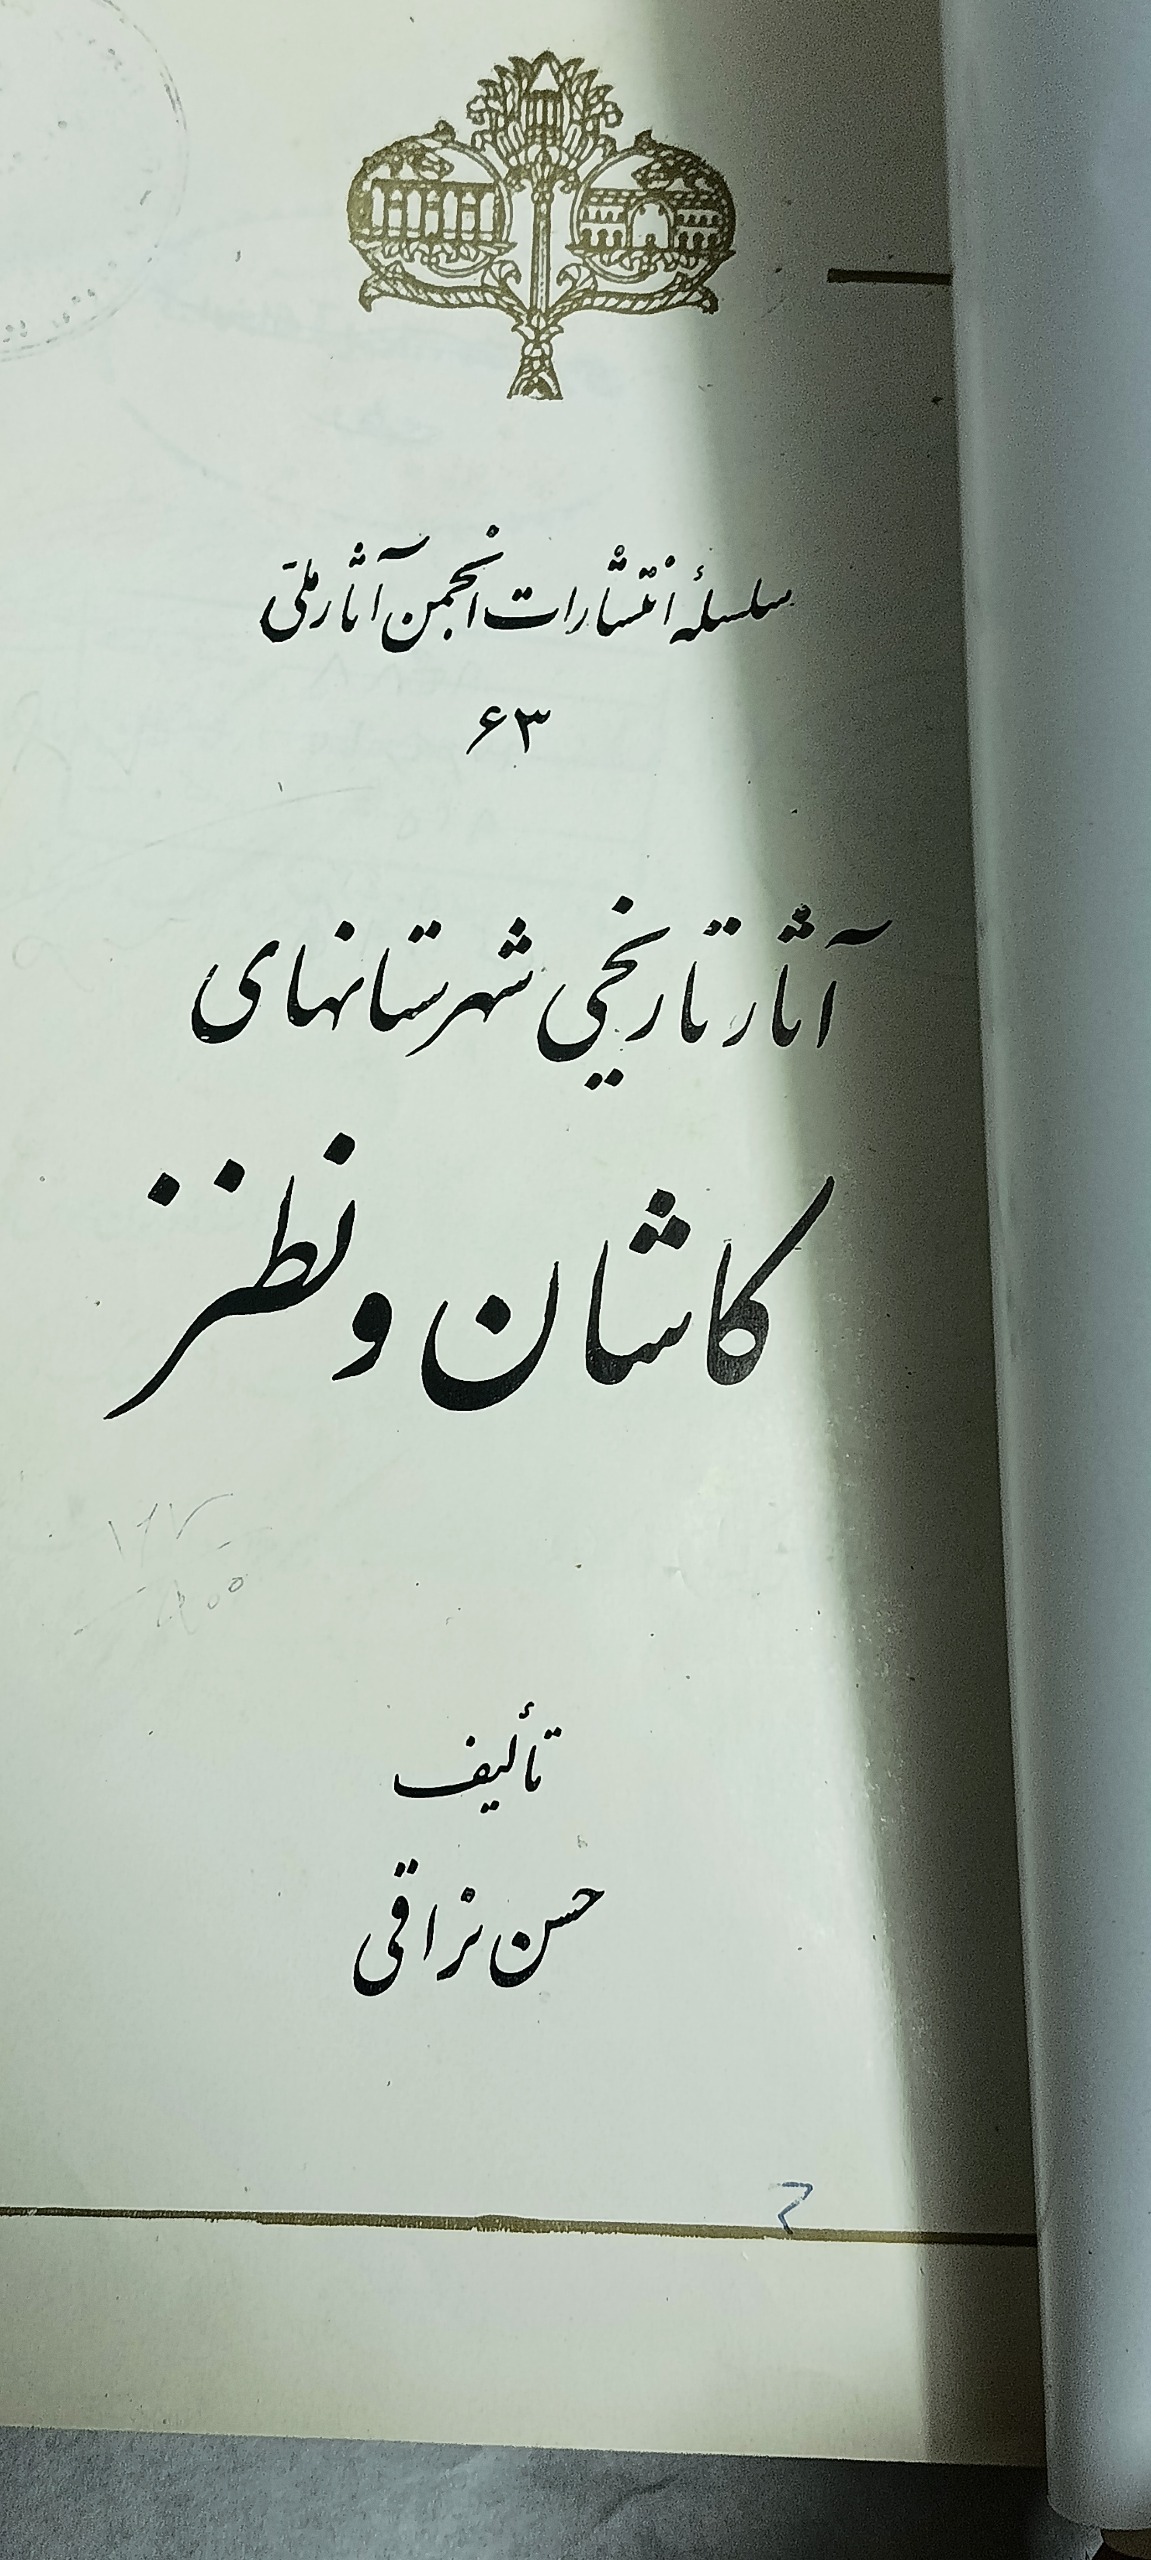 سلسلهٔ انتشارات انجمن آثار ملّی
۶۳
آثار تاریخی شهرستانهای
کاشان و نطنز
تألیف
حسن نراقی